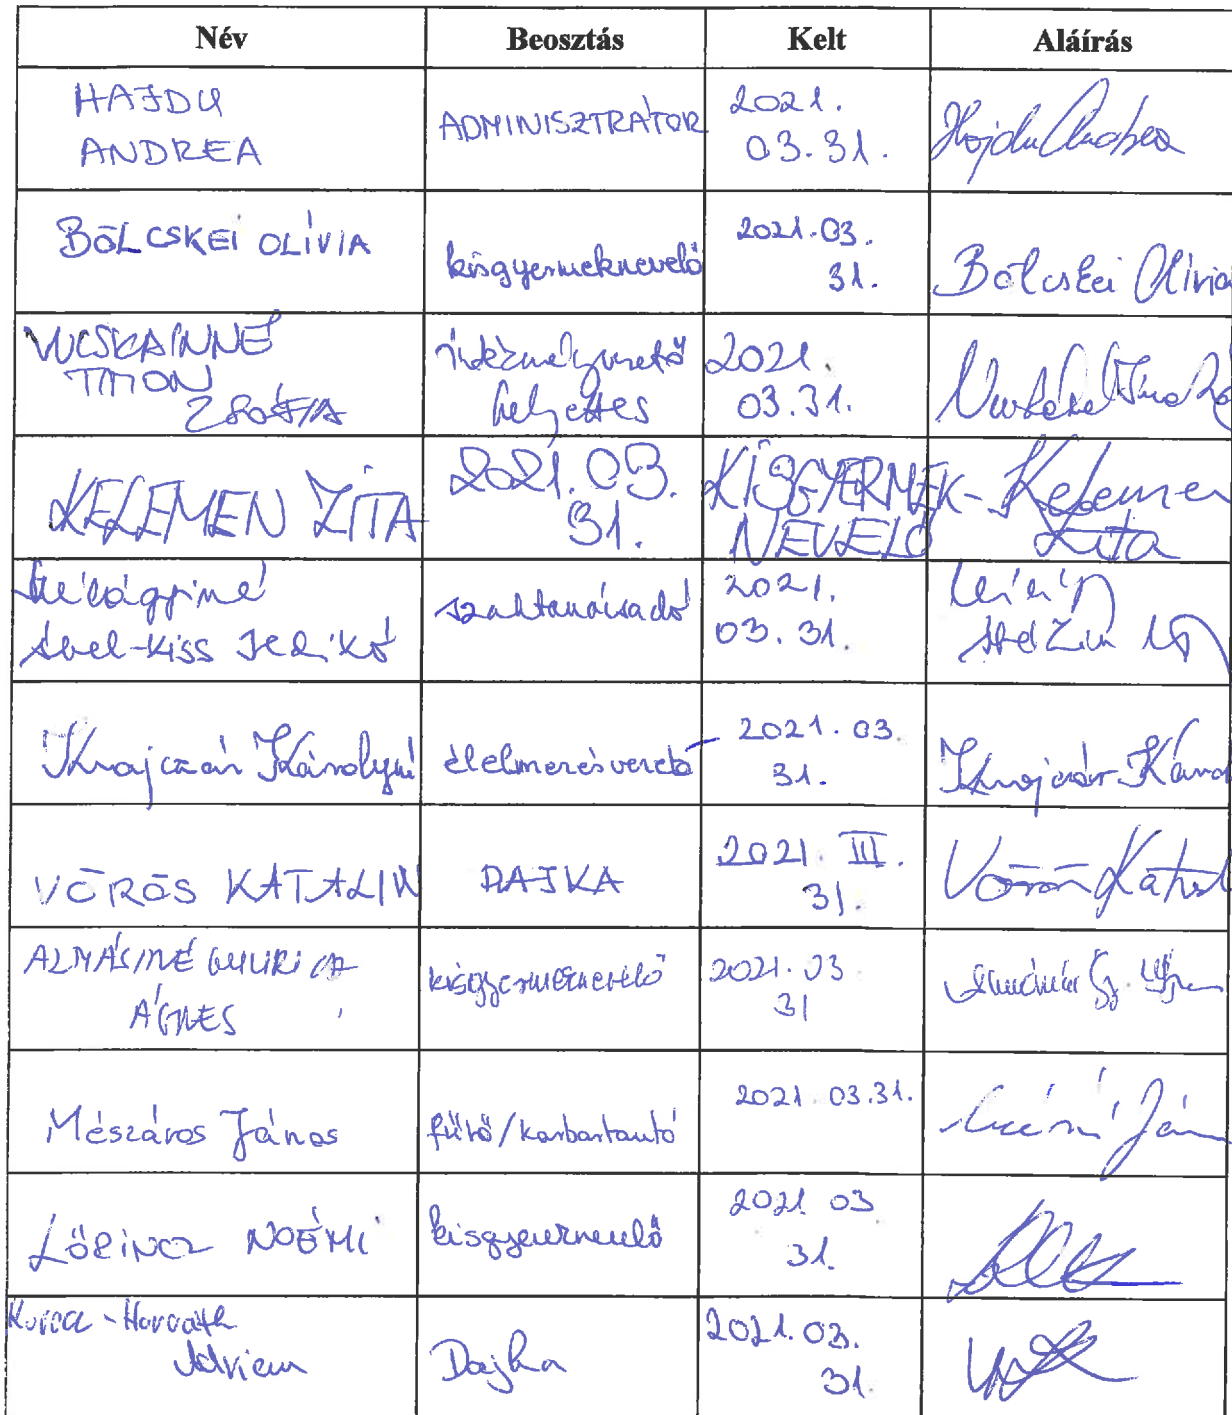 Név Beosztás Kelt Aláírás
HAJDU
ANDREA
ADMINISZTRÁTOR
2021.
03.31.
Hajdu Andrea
BÖLCSKEI OLÍVIA
kisgyermeknevelő
2021.03.
31.
Bölcskei Olívia
TIMON
ZSÓFIA
intézményvezető
helyettes
2021.
03.31.
KELEMEN ZITA
2021.03.
31.
KISGYERMEK-
NEVELŐ
Kelemen
Zita
Ábel-Kiss Ildikó
szaktanácsadó
2021.
03.31.
Krajczár Károlyné
élelmezésvezető
2021.03.
31.
Krajczár Káro
VÖRÖS KATALIN
DAJKA
2021. III.
31.
Vörös Katal
ALMÁSINÉ
ÁGNES
kisgyermeknevelő
2021.03
31
Mészáros János
fűtő/karbantartó
2021.03.31.
LŐRINCZ NOÉMI
kisgyermeknevelő
2021 03
31.
Horváth
Adrienn
Dajka
2021.03.
31.